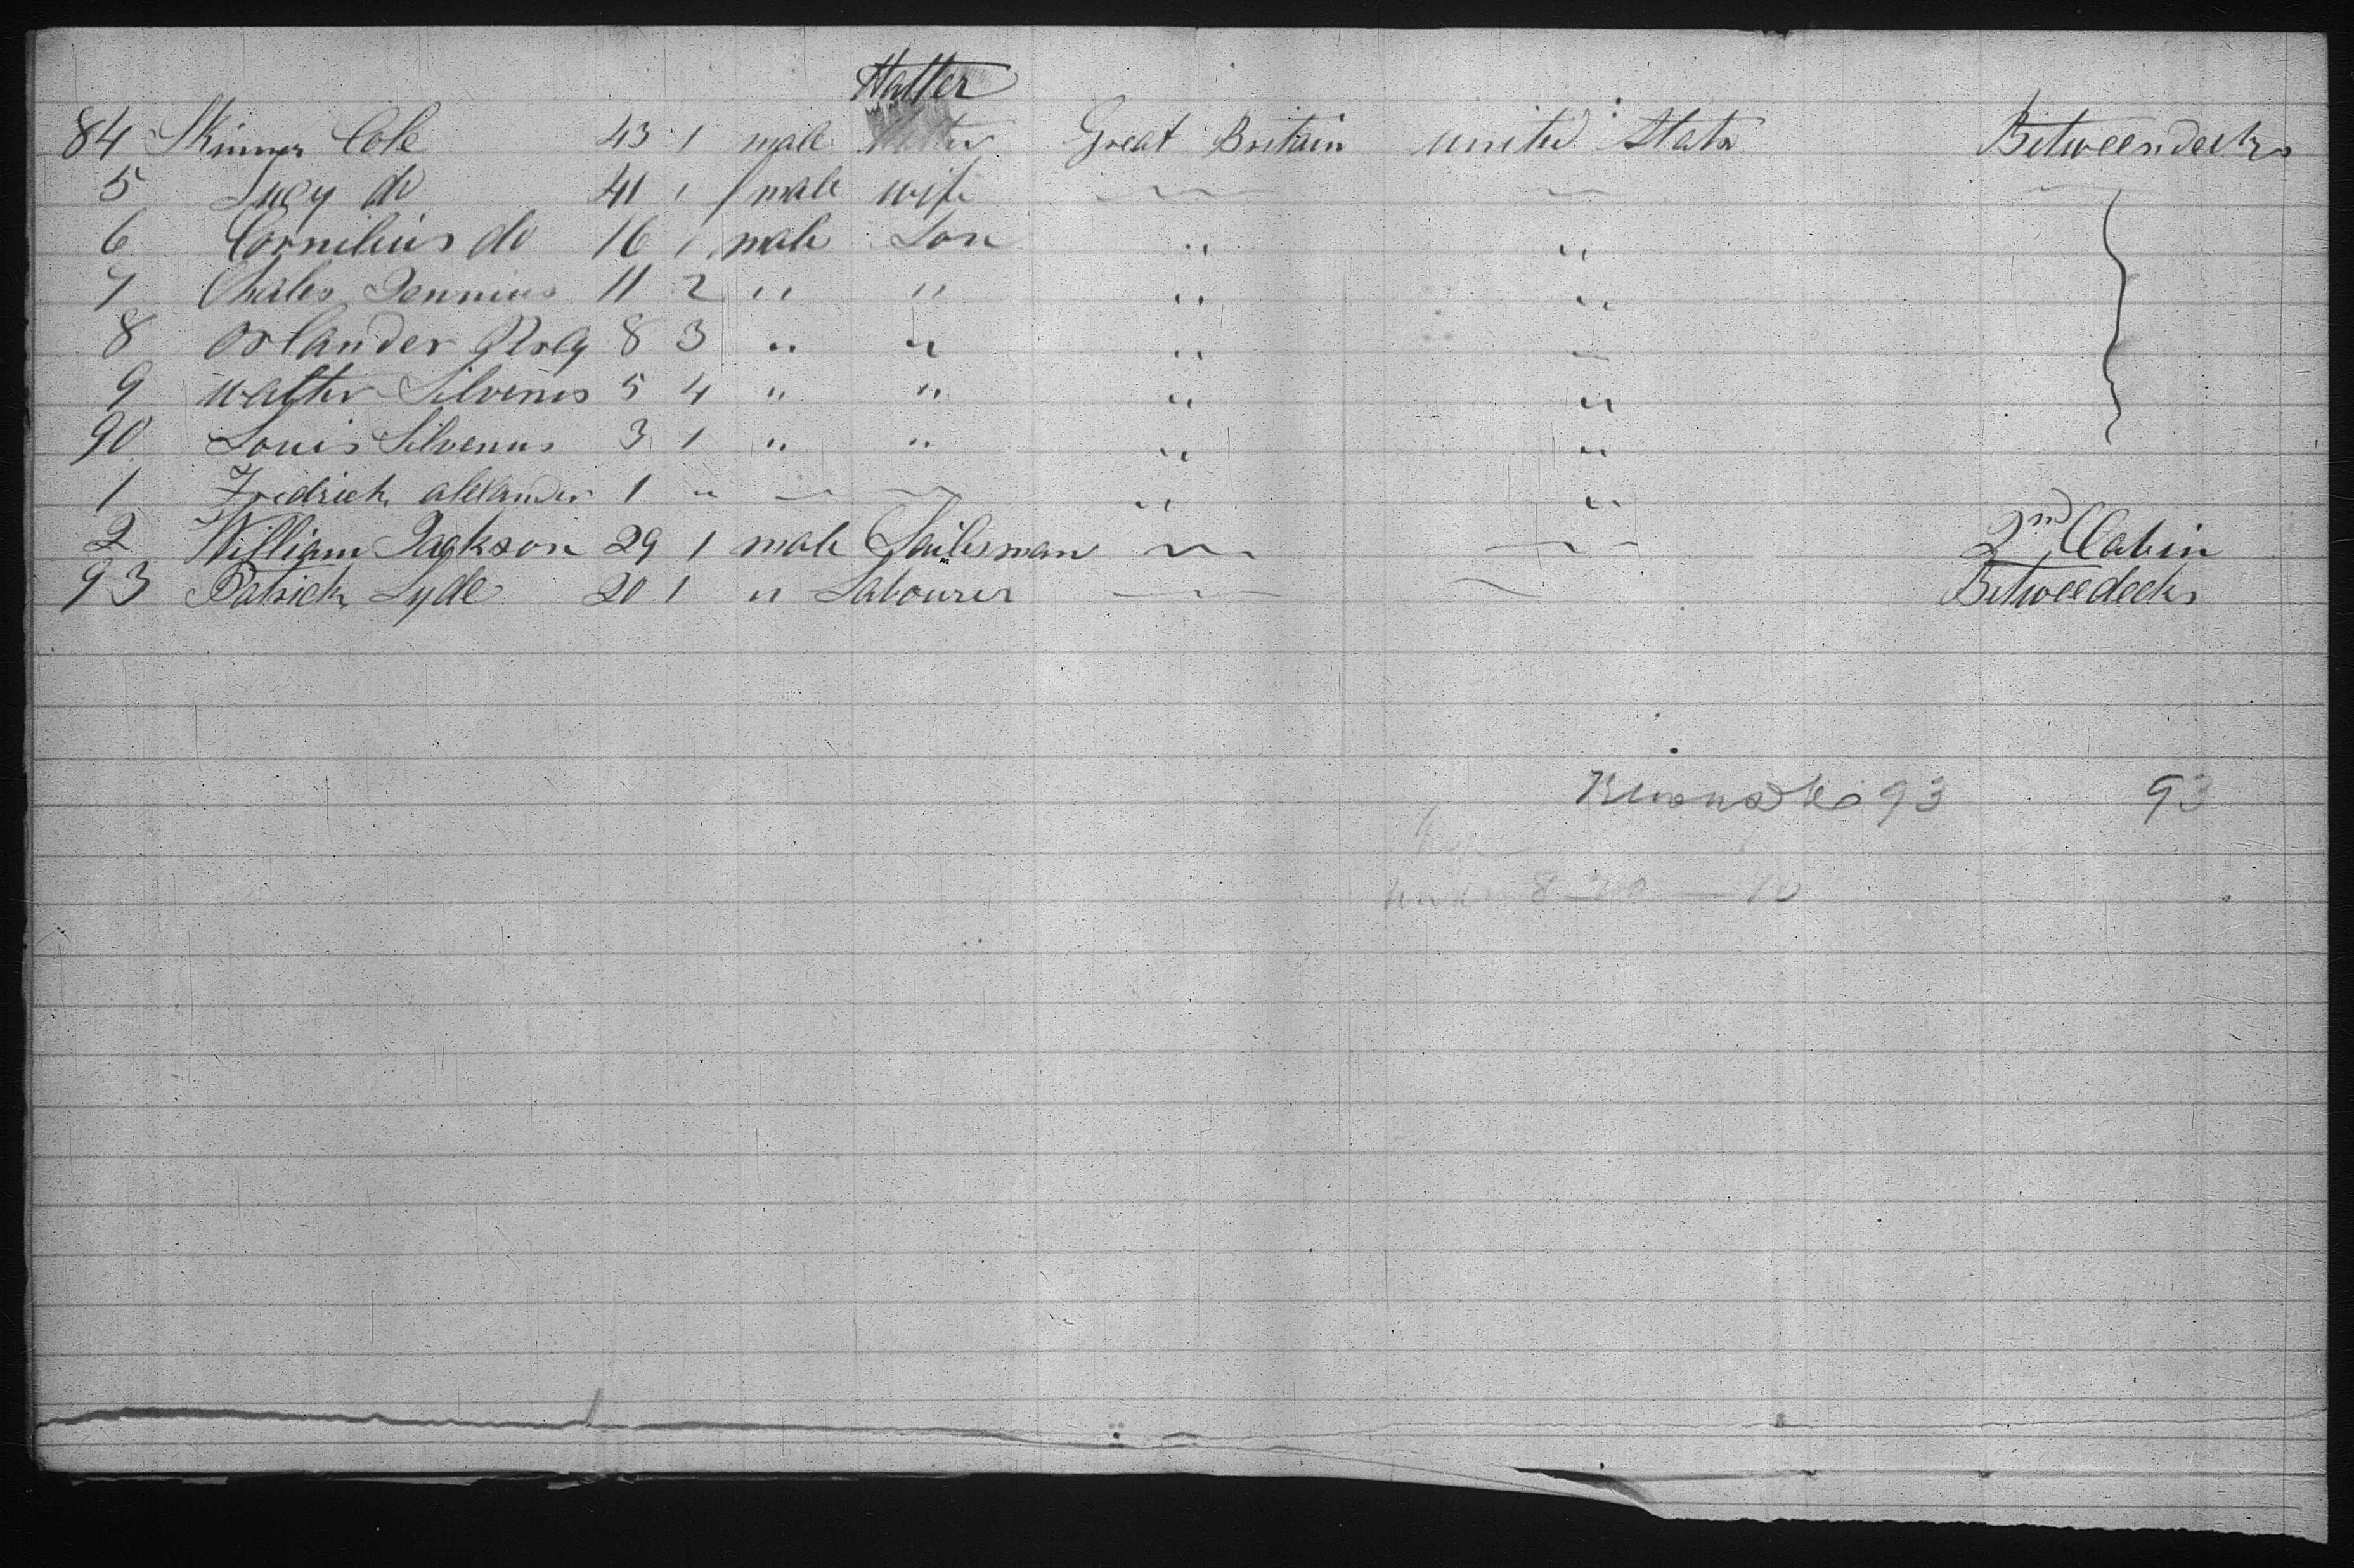 Hatter
84 Skinner Cole 43 1 male Great Britain united States Betweendecks
5 Lucy do 41 1 f male wife
6 Cornilius do 16 1 male Son " "
7 Charles Jennius 11 2 " " " "
8 Orlander 8 3 " " "
9 Walter Silvenus 5 4 " " " "
90 Louis Silvenus 3 1 " " " "
1 Fredrick alexander 1 " " "
2 William Jackson 29 1 male Sailesman 2nd Cabin
93 Patrick Lyde 20 1 " Labourer Betweedecks
93 93